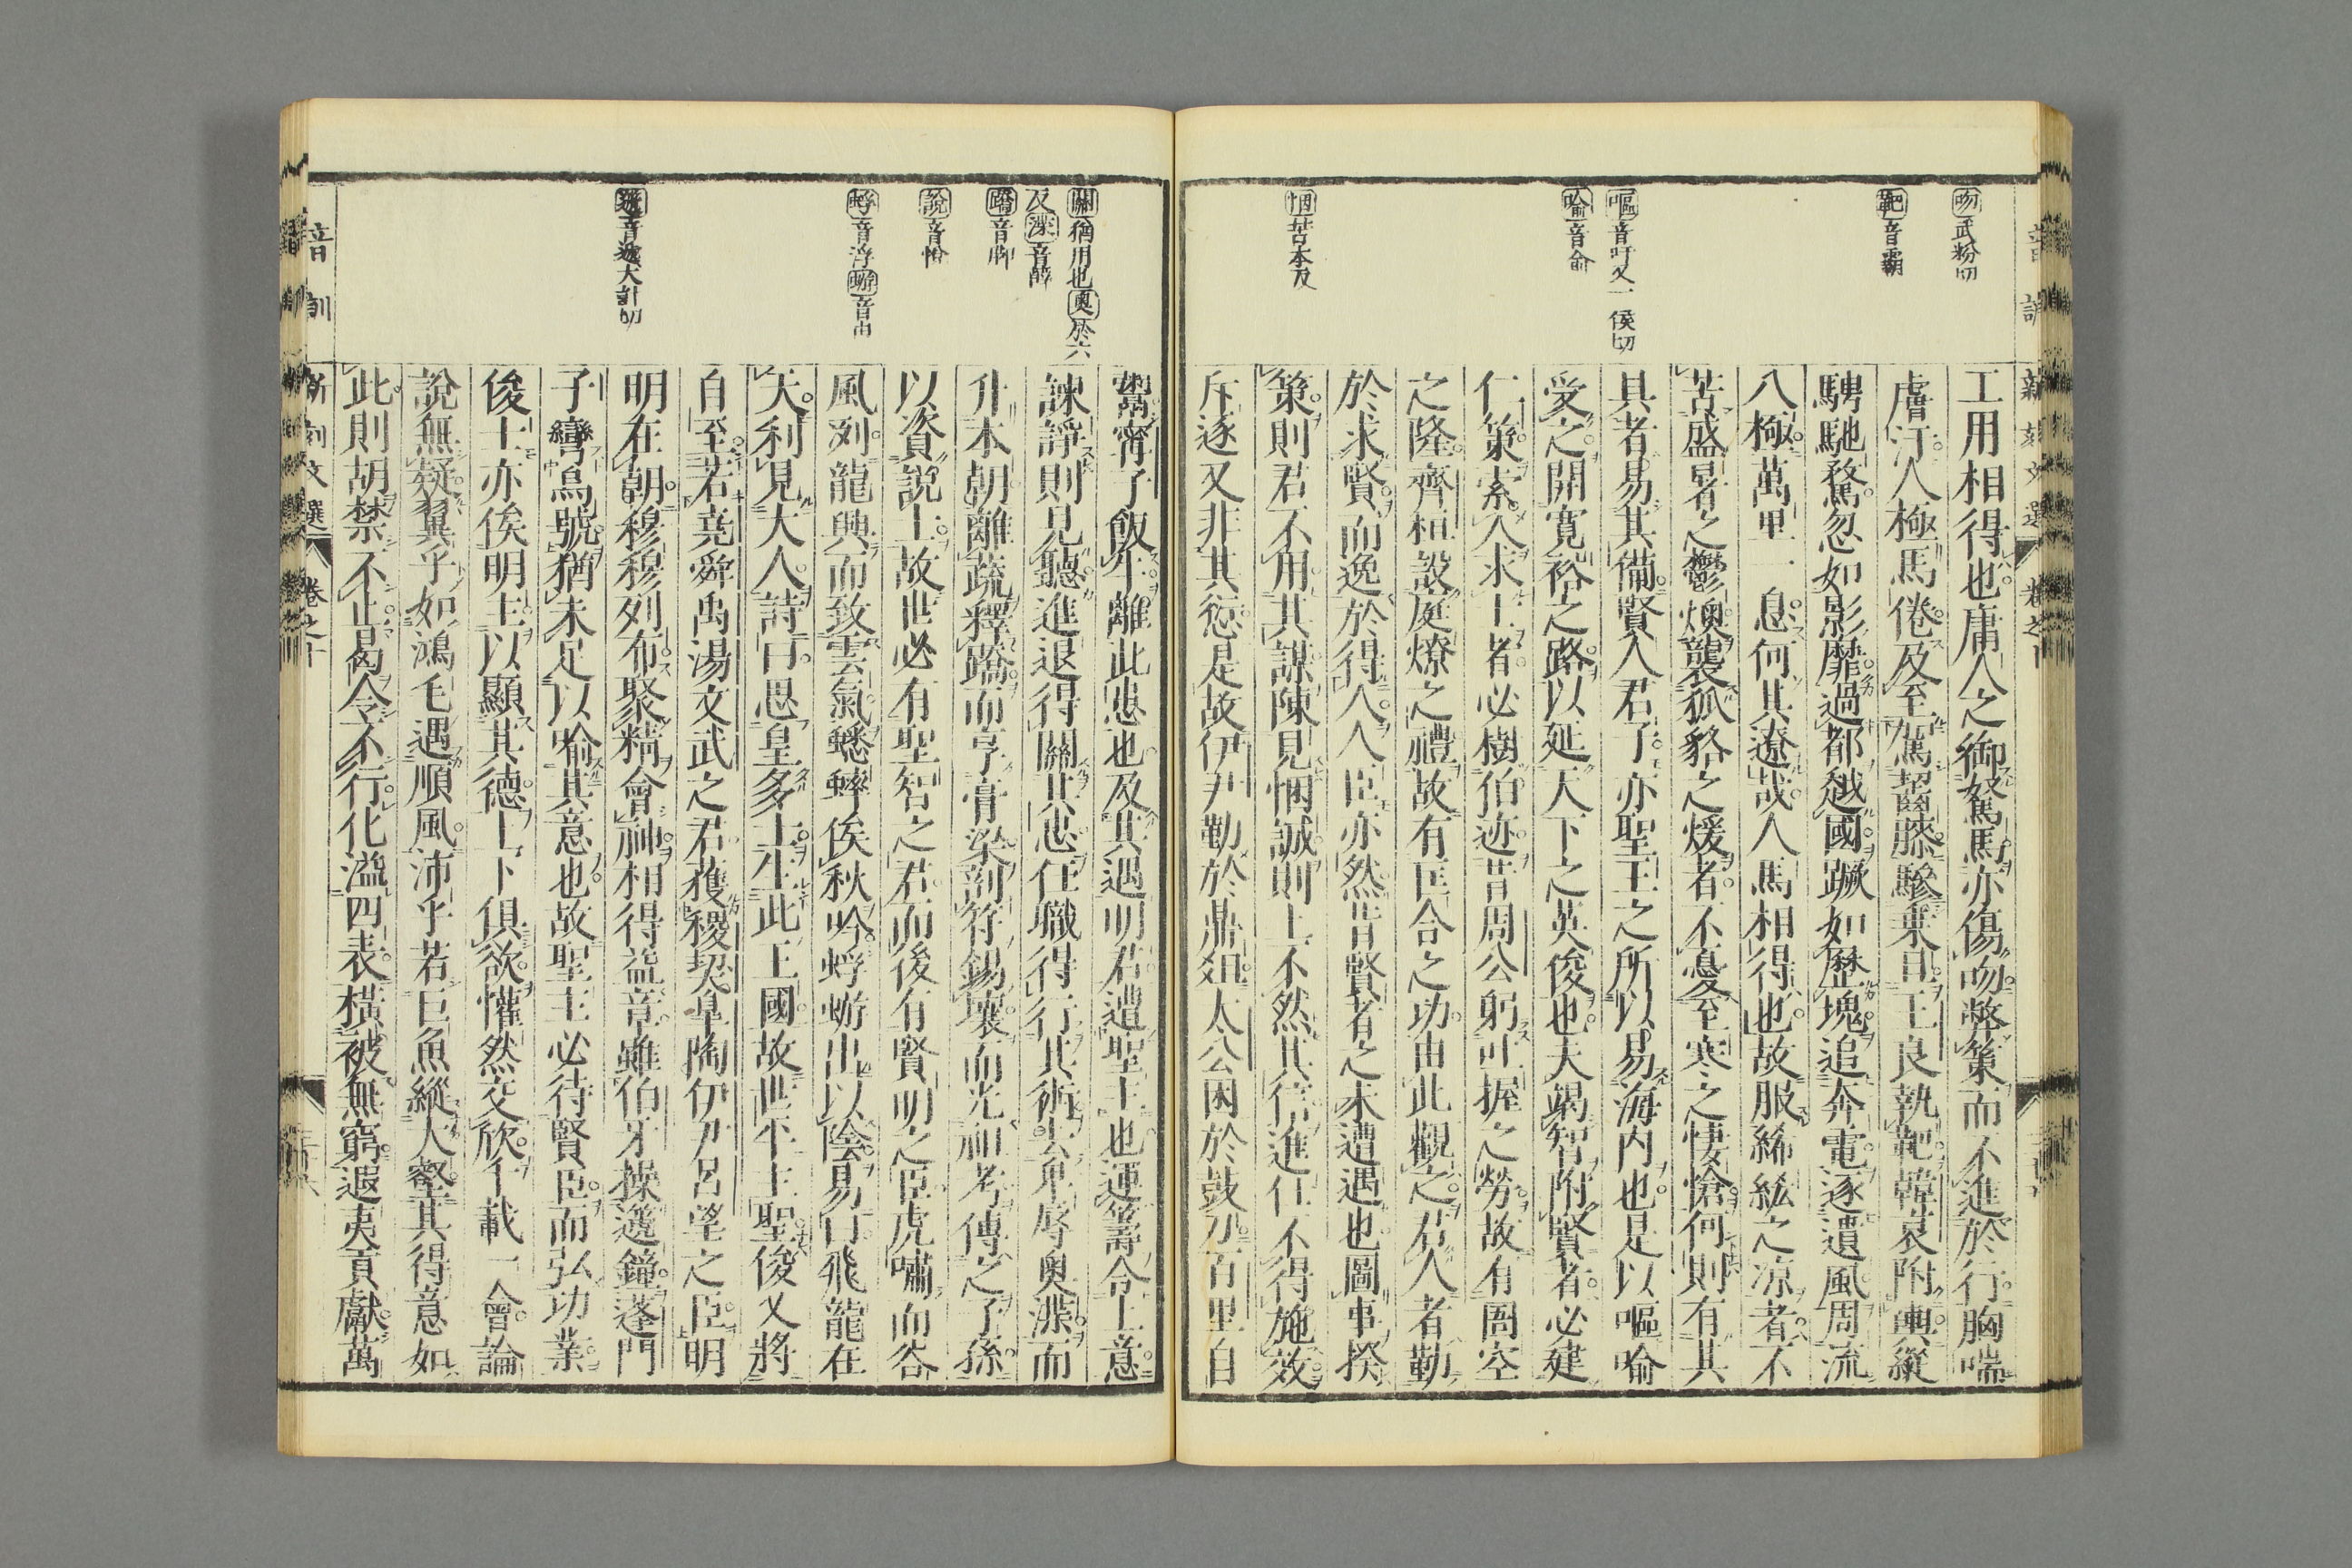 吻武粉切
靶音霸
嘔音吁又一侯切
喻音俞
悃苦本反
工用相得也庸人之御駑馬亦傷吻弊策而不進於行胸喘
膚汗人極馬倦及至駕齧膝驂乗旦王良執靶韓哀附輿縱
騁馳騖忽如影靡過都越國蹶如歷塊追奔電逐遺風周流
八極萬里一息何其遼哉人馬相得也故服絺綌之凉者不
苦盛暑之鬱燠襲狐貉之煖者不憂至寒之悽愴何則有其
具者易其備賢人君子亦聖王之所以易海内也是以嘔喻
受之開寛裕之路以延天下之英俊也夫竭智附賢者必建
仁策索人求士者必樹伯迹昔周公躬吐握之勞故有圄空
之隆齊桓設庭燎之禮故有匡合之功由此觀之君人者勤
於求賢而逸於得人人臣亦然昔賢者之未遭遇也圖事揆
策則君不用其謀陳見悃誠則上不然其信進仕不得施效
斥逐又非其愆是故伊尹勤於鼎俎太公困於鼓刀百里自
關猶用也奧於六
反渫音薛
蹻音脚
說音悅
蜉音浮蝣音由
遞音逓大計切
鬻甯子飯牛離此患也及其遇明君遭聖主也運籌合上意
諫諍則見聽進退得關其忠任職得行其術去卑辱奧渫而
升本朝離蔬釋蹻而享膏梁剖符錫壤而光祖考傳之子孫
以資說士故世必有聖智之君而後有賢明之臣虎嘯而谷
風冽龍興而致雲氣蟋蟀俟秋吟蜉蝣出以陰易曰飛龍在
天利見大人詩曰思皇多士生此王國故世平主聖俊乂將
自至若堯舜禹湯文武之君獲稷契皐陶伊尹呂望之臣明
明在朝穆穆列布聚精會神相得益章雖伯牙操遞鐘蓬門
子彎烏號猶未足以喻其意也故聖主必待賢臣而弘功業
俊士亦俟明主以顯其德上下俱欲懽然交欣千載一會論
說無疑翼乎如鴻毛遇順風沛乎若巨魚縱大壑其得意如
此則胡禁不止曷令不行化溢四表橫被無窮遐夷貢獻萬
音訓
新刻文選
卷之十